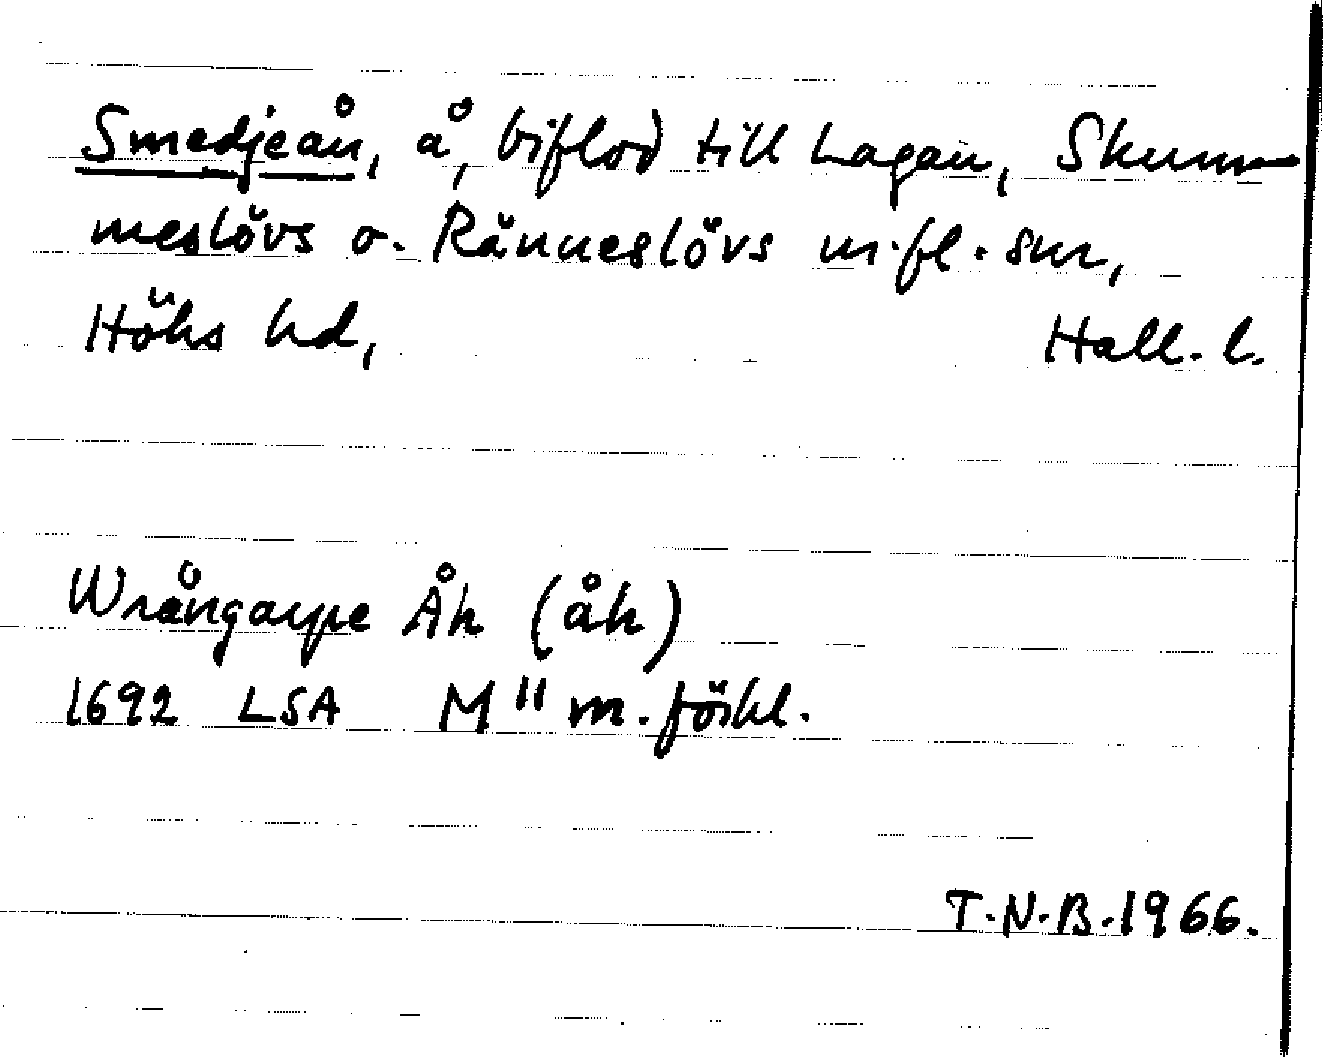 Smedjeån, å, biflod till Lagan, Skum-
meslövs o. Ränneslövs m.fl. snr,
Höks hd, Hall. l.
Wrångarpe Åh (åh)
1692 LSA M" m. förkl.
T.N.B. 1966.